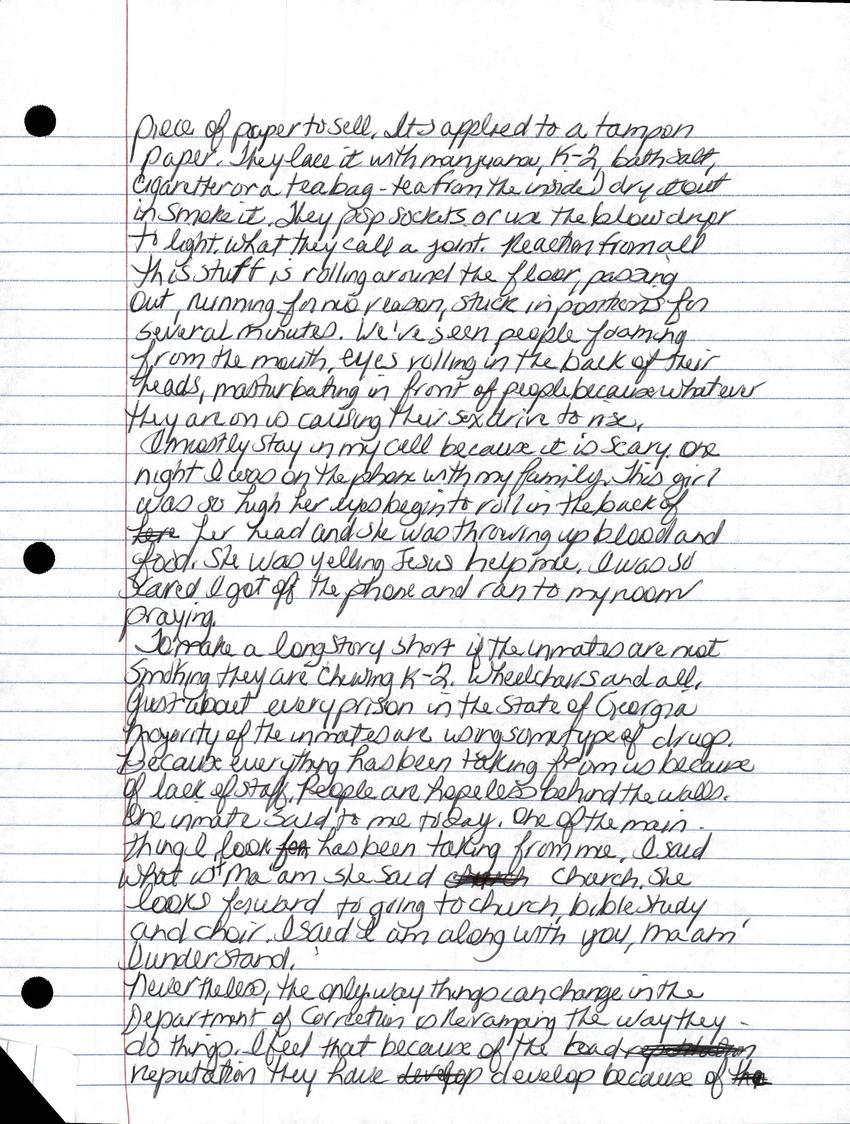 piece of paper to sell. Its applied to a tampon
paper. They lace it with marijuana, K-2, bath salt,
cigarette or a teabag - tea from the inside) dry it out
in smoke it. They pop sockets or use the blow dryer
to light. what they call a joint. Reaction from all
this stuff is rolling around the floor, passing
out, running for no reason, stuck in positions for
several minutes. We've seen people foaming
from the mouth, eyes rolling in the back of their
heads, masturbating in front of people because whatever
they are on is causing their sex drive to rise.
I mostly stay in my cell because it is scary. one
night I was on the phone with my family. This girl
was so high her eyes begin to roll in the back of
her head and she was throwing up blood and
food. She was yelling Jesus help me. I was so
scared I got off the phone and ran to my room
praying.
To make a long story short if the inmates are not
smoking they are chewing K-2. Wheelchairs and all.
Just about every prison in the State of Georgia
majority of the inmates are using some type of drugs.
Because everything has been taking from us because
of lack of staff. People are hopeless behind the walls.
One inmate said to me today. One of the main
thing I look for has been taking from me. I said
what is it Ma'am she said church church. She
looks forward to going to church, bible study
and choir. I said I am along with you, ma'am
I understand.
Nevertheless, the only way things can change in the
Department of Correction is Revamping the way they -
do things. I feel that because of the bad reputation
reputation they have develop develop because of the